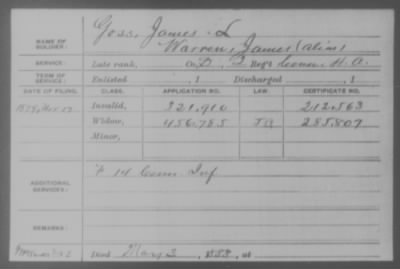 NAME OF SOLDIER: Goss, James L
Warren, James (alias)
SERVICE: Late rank, Co. D, 2 Reg't Conn. H. A.
TERM OF SERVICE: Enlisted , 1 Discharged , 1
DATE OF FILING. CLASS. APPLICATION NO. LAW. CERTIFICATE NO.
1879, Invalid, 321,910 212,563
Widow, 456,785 285,807
Minor,
ADDITIONAL SERVICES: F 14 Conn Inf
REMARKS:
Died 3, 1888, at